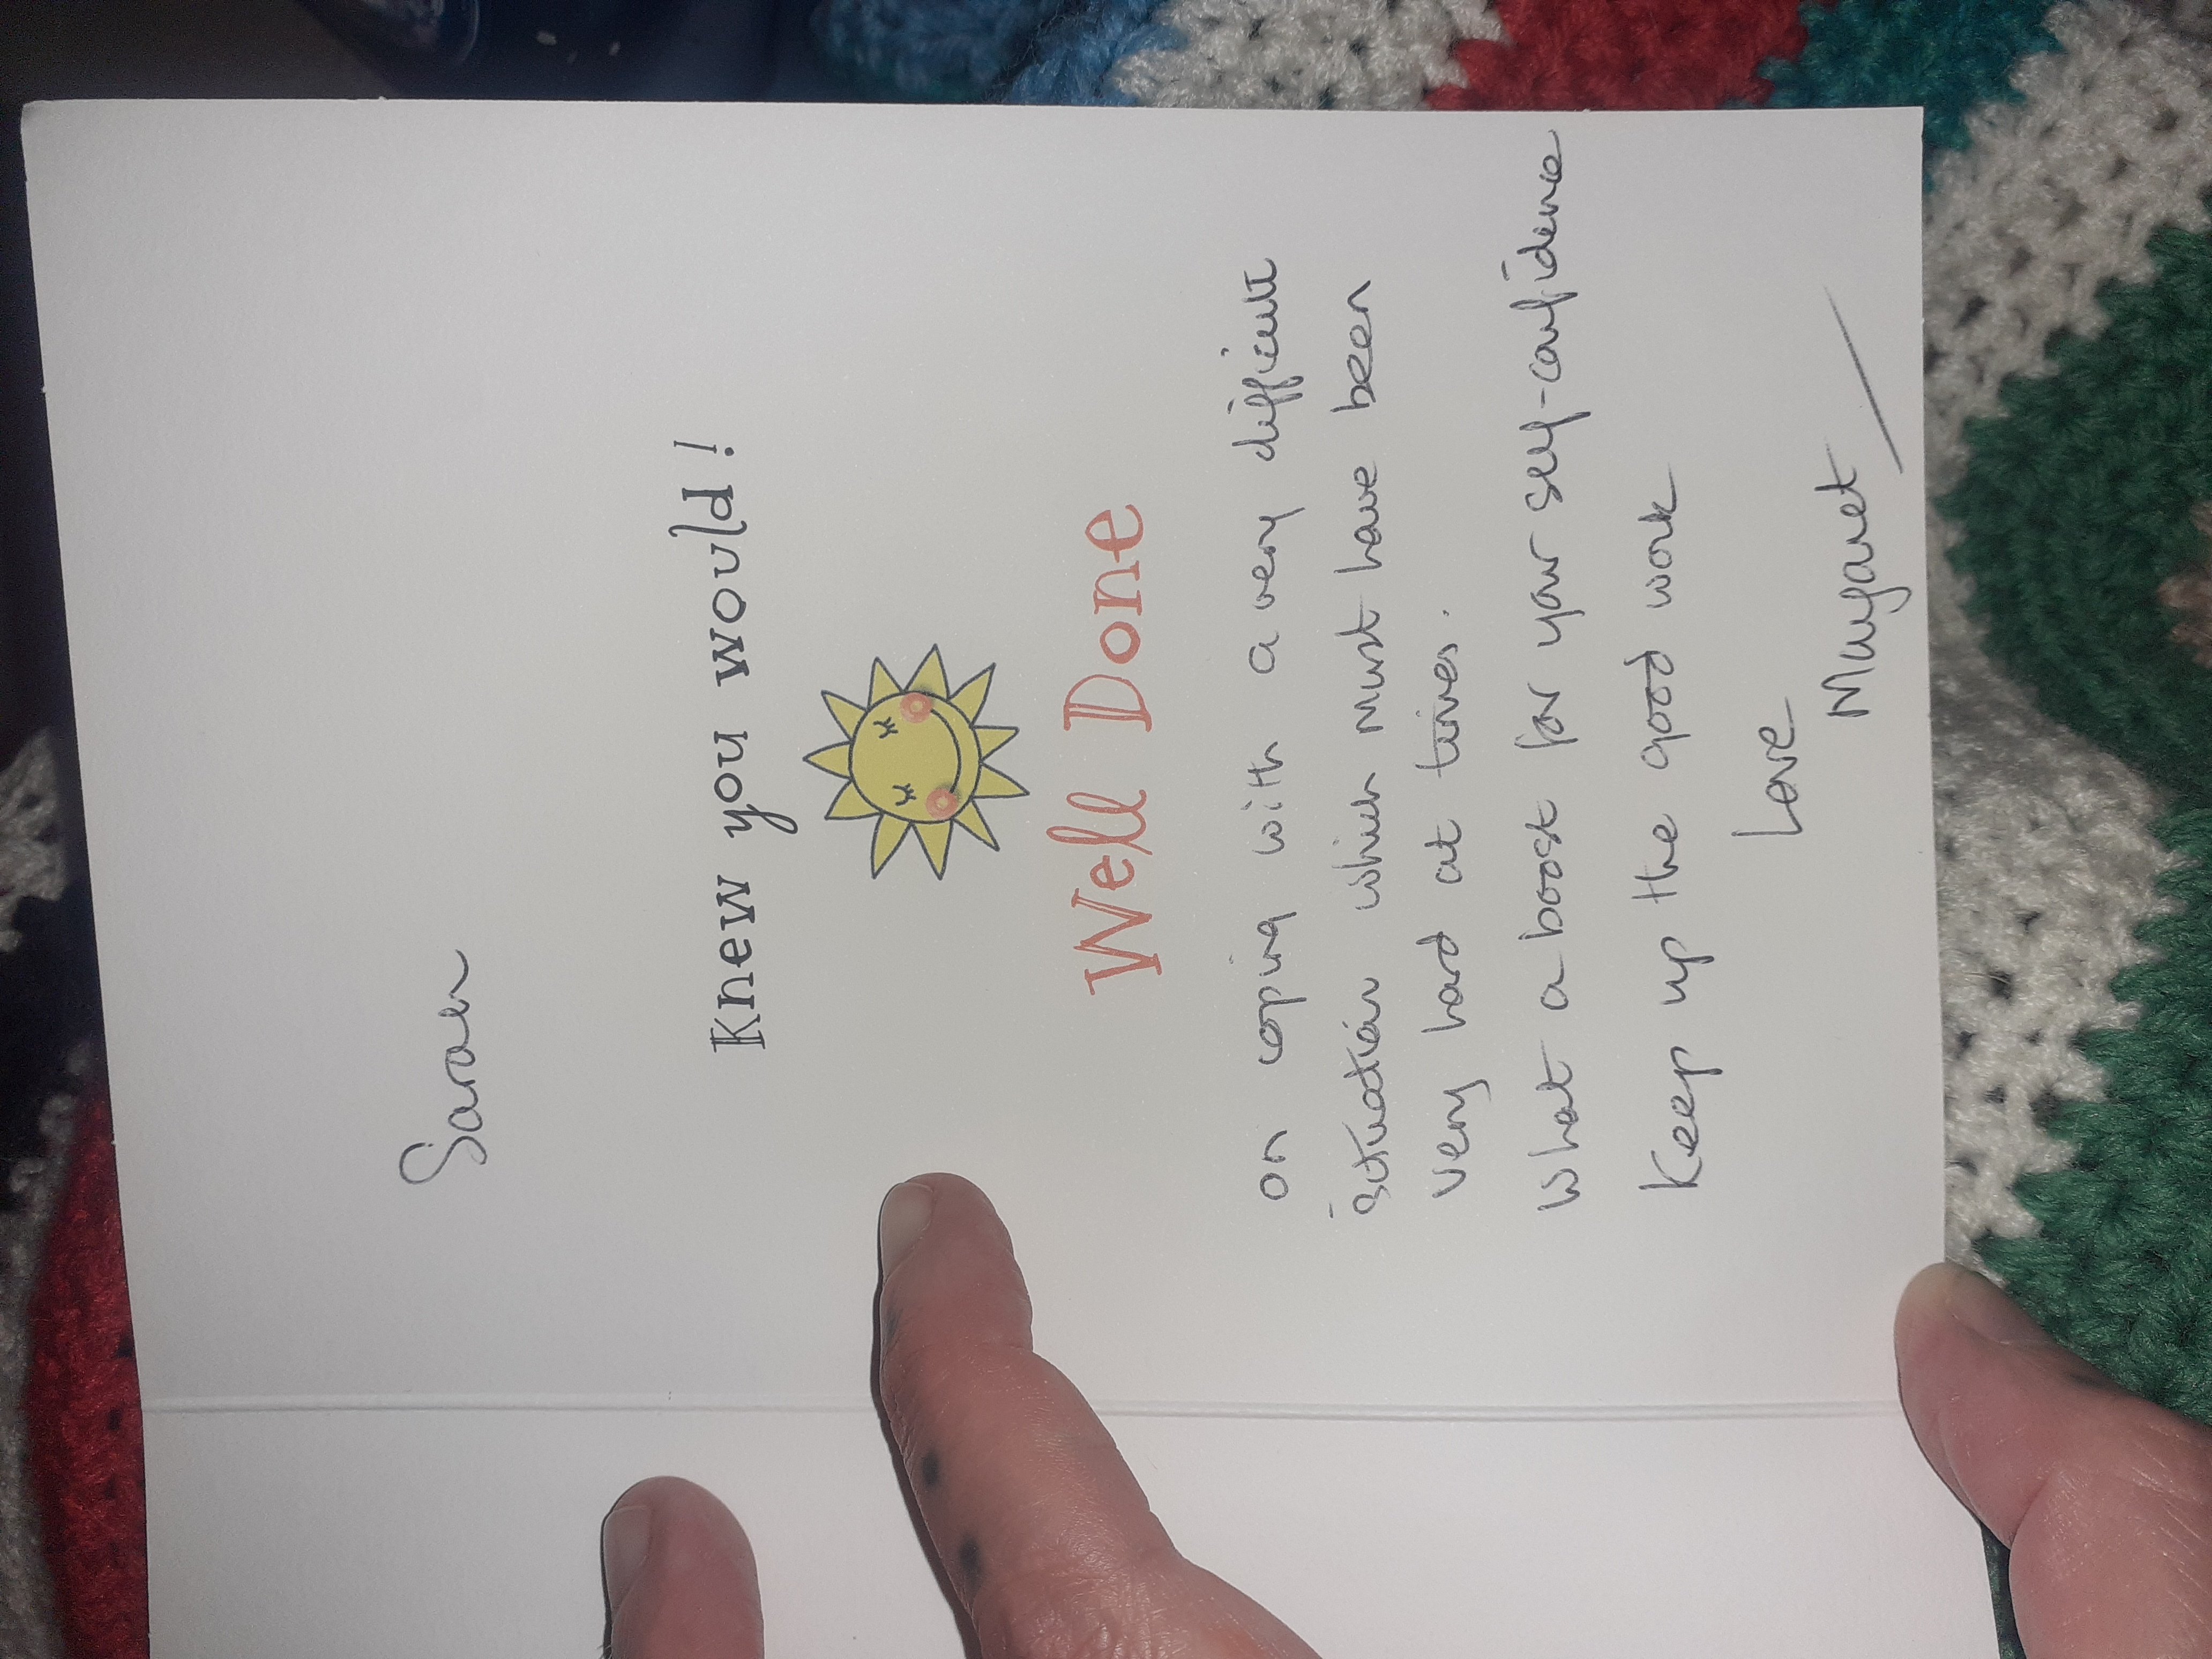 Sarah
Knew you would!
Well Done
on coping with a very difficult
situation which must have been
very hard at times.
What a boost for your self-confidence
Keep up the good work
Love
Margaret